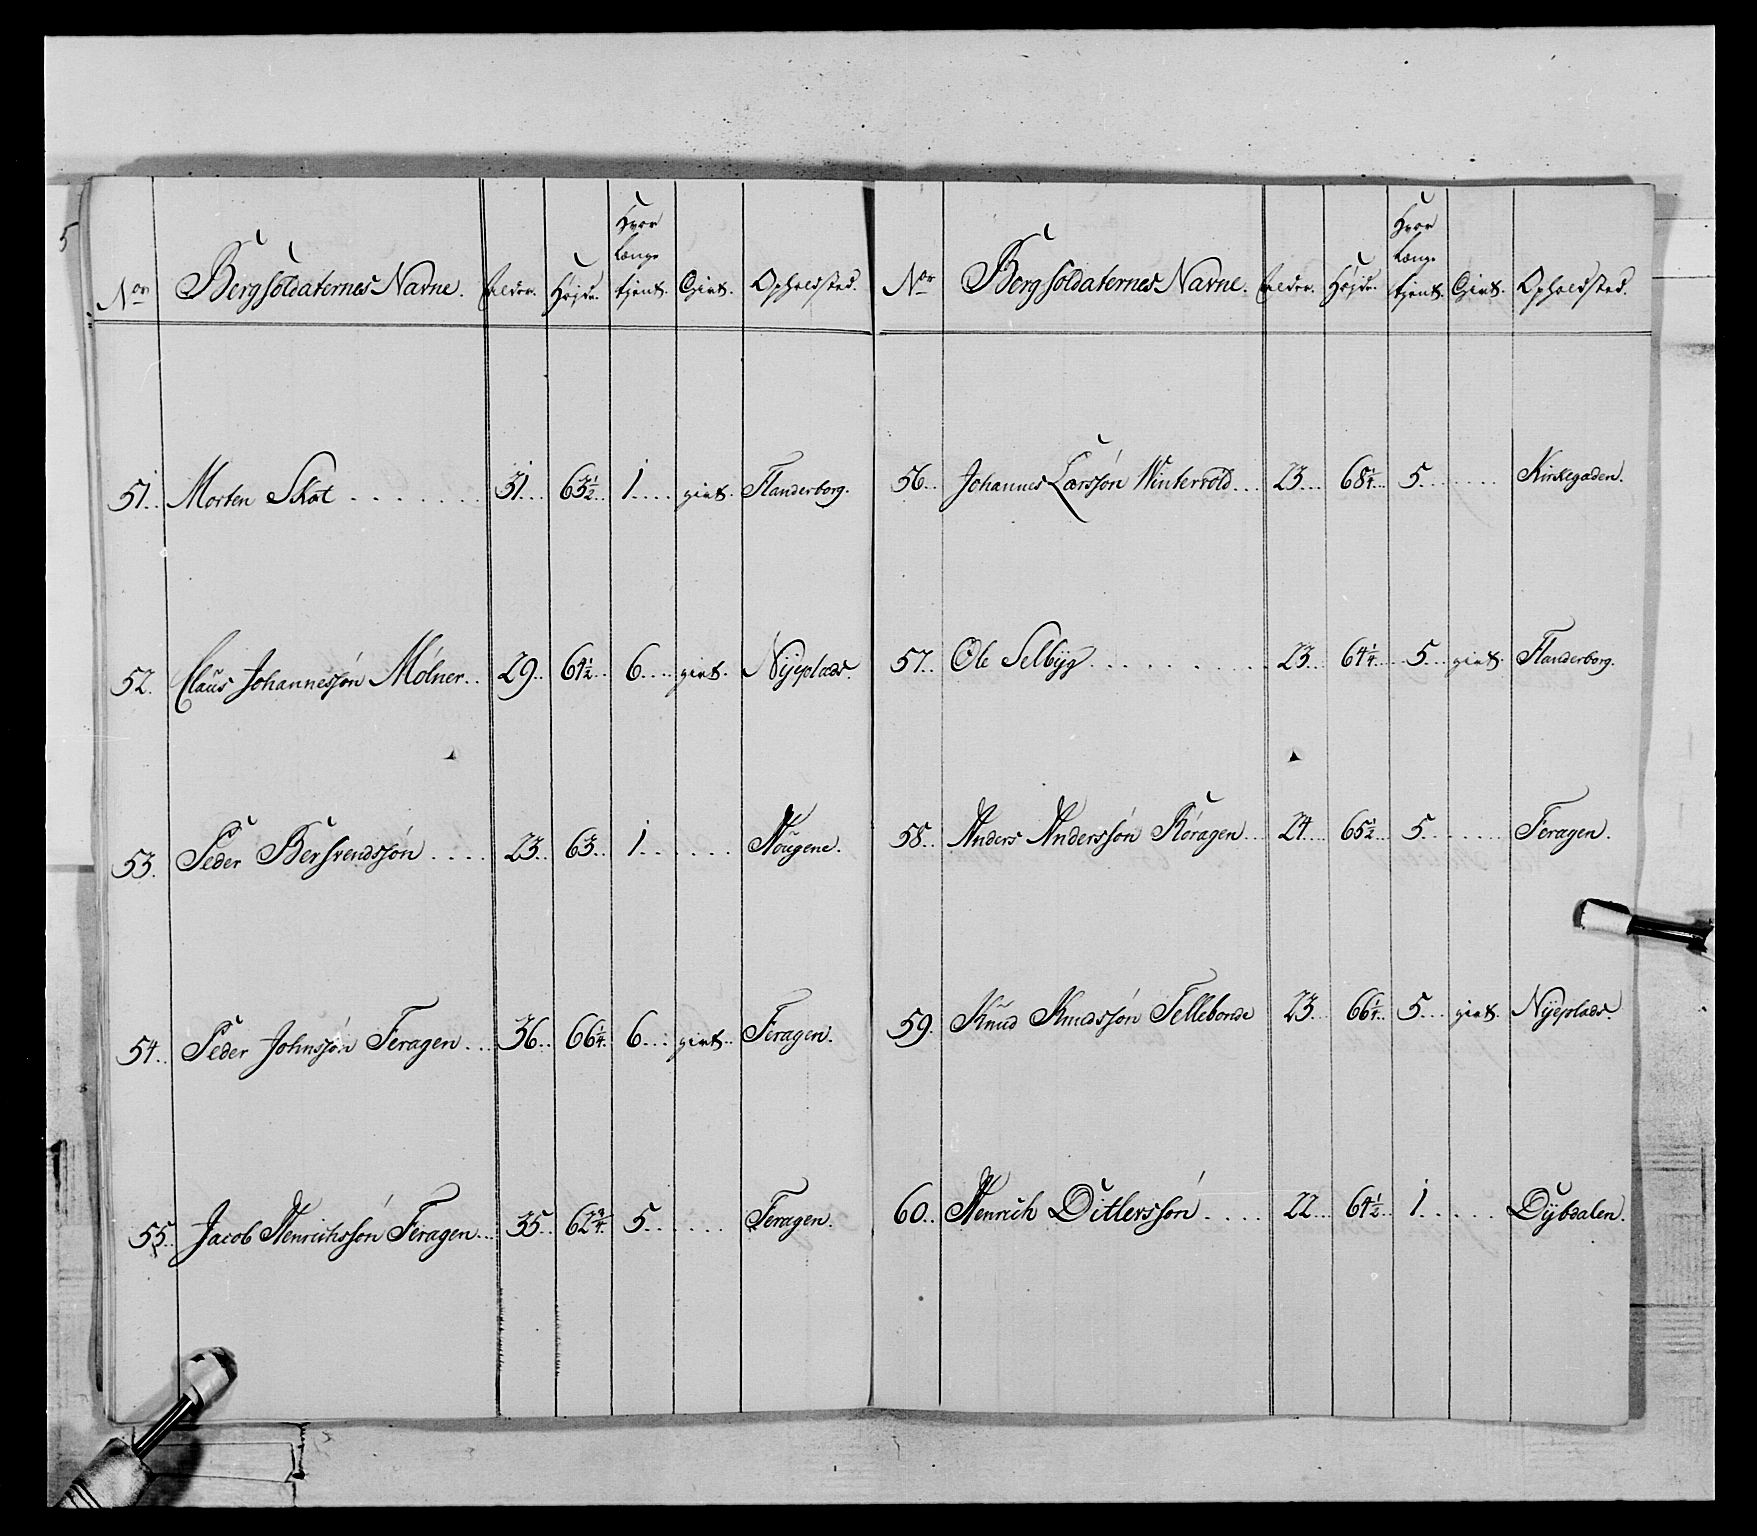 Nor Bergsoldaternes Navne. Alder. Højde. Hvor længe tjent. Givt. Opholdsted.
51. Morten Skot . . . . . . . 31. 63½. 1. givt. Flanderborg.
52. Claus Johannessøn Mølner. 29. 64½. 6. givt. Nÿeplads.
53. Peder Bersvendssøn . . . . 23. 63. 1. . . . . Hougene.
54. Peder Johnssøn Feragen . . 36. 66¼. 6. givt. Feragen.
55. Jacob Henrichssøn Feragen. 35. 62¾. 5. . . . . Feragen.
Nor Bergsoldaternes Navne. Alder. Højde. Hvor længe tjent. Givt. Opholdsted.
56. Johannes Larssøn Wintervold. 23. 68¼. 5. . . . . Kirkegaden.
57. Ole Selbÿg . . . . . . . . 23. 64¼. 5. givt. Flanderborg.
58. Anders Anderssøn Røragen. 24. 65½. 5. . . . . Feragen.
59. Knud Knudssøn Tellebonde 23. 66¼. 5. givt. Nÿeplads.
60. Henrich Ditlevssøn . . . . 22. 64½. 1. . . . . Dÿbdalen.